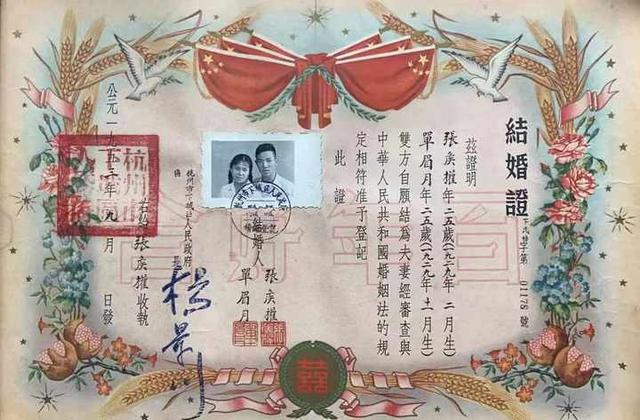 結婚證
字第 01178 號
茲證明
張 年二五歲(一九二九年 二月生)
單眉月年二五歲(一九二九年十一月生)
雙方自願結為夫妻經審查與
中華人民共和國婚姻法的規
定相符准予登記
此證
結婚人 張
單眉月
杭州市 城區人民政府
張 收執
公元一九五三年 月 日發
杭州市
百年好合
囍